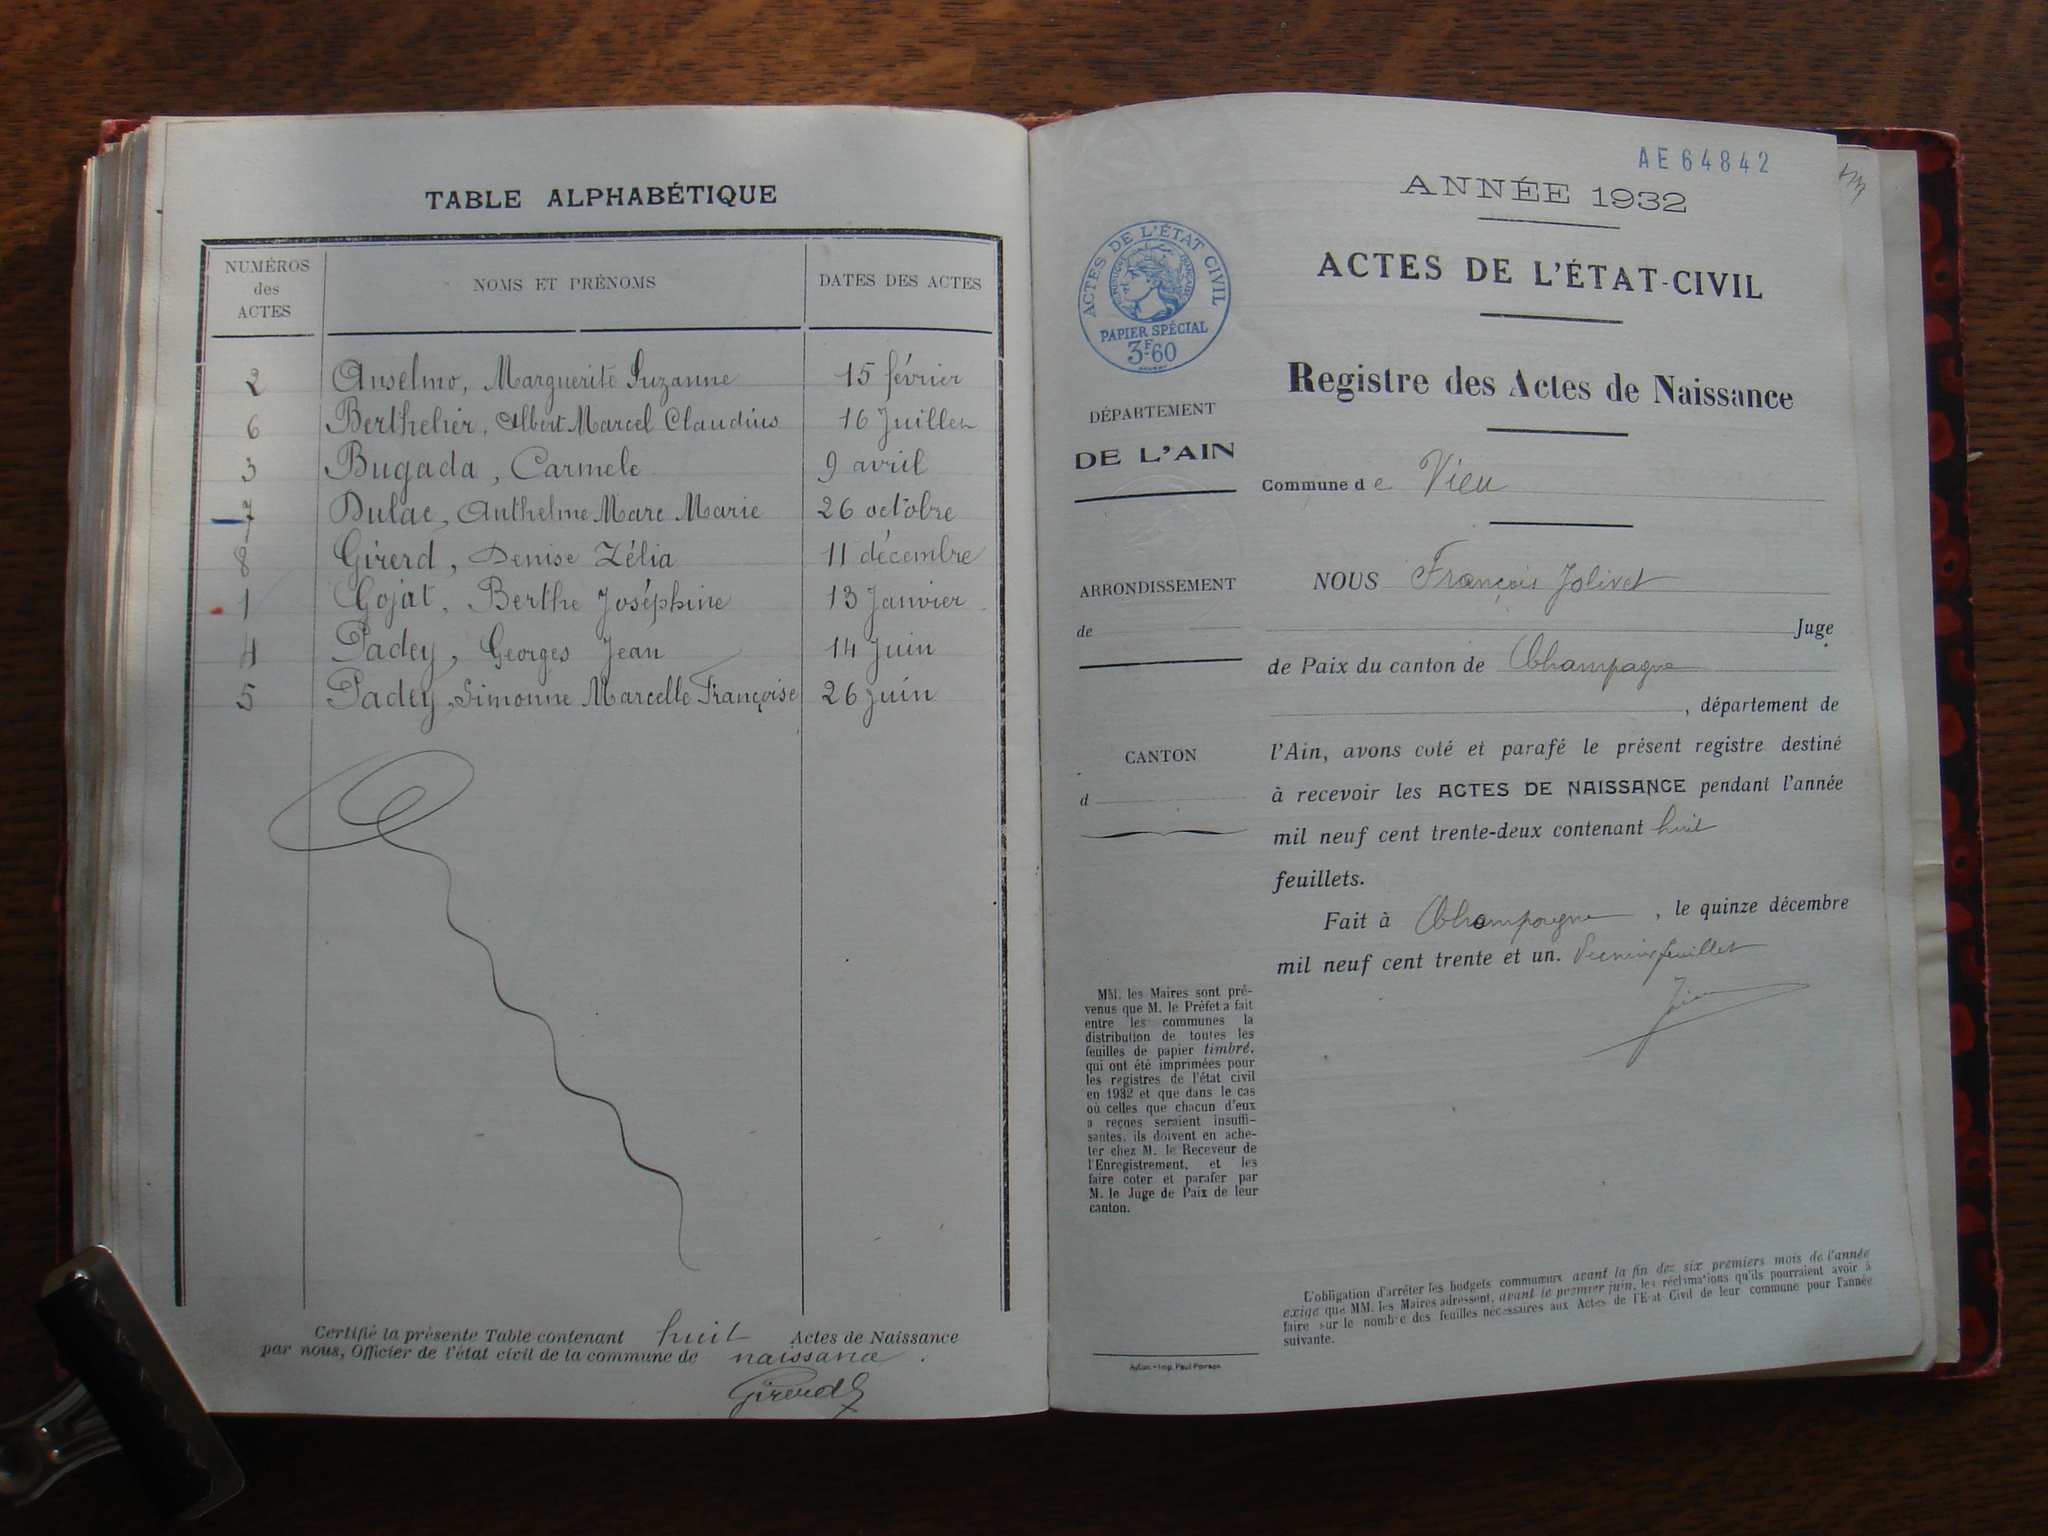 TABLE ALPHABÉTIQUE
NUMÉROS
des
ACTES
NOMS ET PRÉNOMS
DATES DES ACTES
2 Anselmo, Marguerite Suzanne 15 février
6 Berthelier, Albert Marcel Claudius 16 Juillet
3 Bugada, Carmele 9 avril
7 Dulac, Anthelme Marc Marie 26 octobre
8 Girerd, Denise Zélia 11 décembre
1 Gojat, Berthe Joséphine 13 Janvier
4 Padey, Georges Jean 14 Juin
5 Padey, Simonne Marcelle Françoise 26 juin
Certifié la présente Table contenant huit Actes de Naissance
par nous, Officier de l'état civil de la commune de naissance.
Girerd
AE 64842
ANNÉE 1932
ACTES DE L'ÉTAT CIVIL
RÉPUBLIQUE FRANÇAISE
PAPIER SPÉCIAL
3F.60
ACTES DE L'ÉTAT-CIVIL
Registre des Actes de Naissance
DÉPARTEMENT
DE L'AIN
Commune de Vieu
ARRONDISSEMENT
de
CANTON
d
NOUS François Jolivet
Juge
de Paix du canton de Champagne
, département de
l'Ain, avons coté et parafé le présent registre destiné
à recevoir les ACTES DE NAISSANCE pendant l'année
mil neuf cent trente-deux contenant huit
feuillets.
Fait à Champagne, le quinze décembre
mil neuf cent trente et un. feuillet
MM. les Maires sont pré-
venus que M. le Préfet a fait
entre les communes la
distribution de toutes les
feuilles de papier timbré,
qui ont été imprimées pour
les registres de l'état civil
en 1932 et que dans le cas
où celles que chacun d'eux
a reçues seraient insuffi-
santes, ils doivent en ache-
ter chez M. le Receveur de
l'Enregistrement, et les
faire coter et parafer par
M. le Juge de Paix de leur
canton.
L'obligation d'arrêter les budgets communaux avant la fin des six premiers mois de l'année
exige que MM. les Maires adressent, avant le premier juin, les réclamations qu'ils pourraient avoir à
faire sur le nombre des feuilles nécessaires aux Actes de l'Etat Civil de leur commune pour l'année
suivante.
Imp. Paul